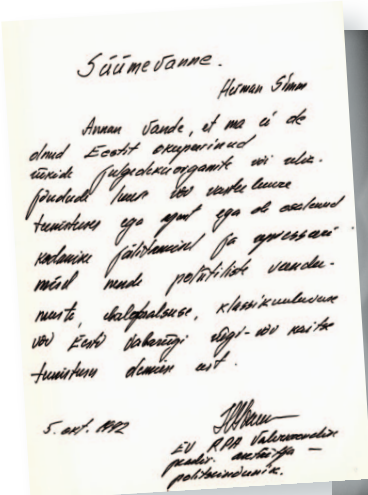 Süümevanne.
Herman Simm
Annan vande, et ma ei ole
olnud Eestit okupeerinud
riikide julgeolekuorganite või relv-
jõudude luure või vastuluure
teenistuses ega agent ega ole osalenud
kodanike jälitamisel ja
nende poliitiliste veendu-
muste, ebalojaalsuse, klassikuuluvuse
või Eesti Vabariigi riigi- või kaitse
teenistuses olemise eest.
5. okt. 1992
EV RPA Välissuhete
—
politseinõunik.